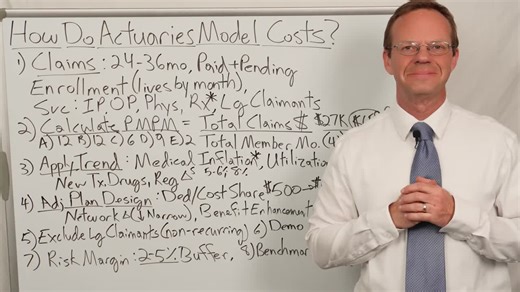 How Do Actuaries Model Costs?
1) Claims: 24-36mo, Paid+Pending
Enrollment (lives by month),
Svc: IP, OP, Phys, Rx* Lg Claimants
2) Calculate PMPM = Total Claims $ $27K
A) 12 B) 12 C) 6 D) 9 E) 2 Total Member Mo. (4
3) Apply Trend: Medical Inflation*, Utilization
New Tx. Drugs, Reg Δs 5-6%, 8%
4) Adj Plan Design: Ded/Cost Share $500→
Network Δ (↓ Narrow), Benefit Enhancement
5) Exclude Lg Claimants (non-recurring) 6) Demo
7) Risk Margin: 2-5% Buffer, 8) Benchmar